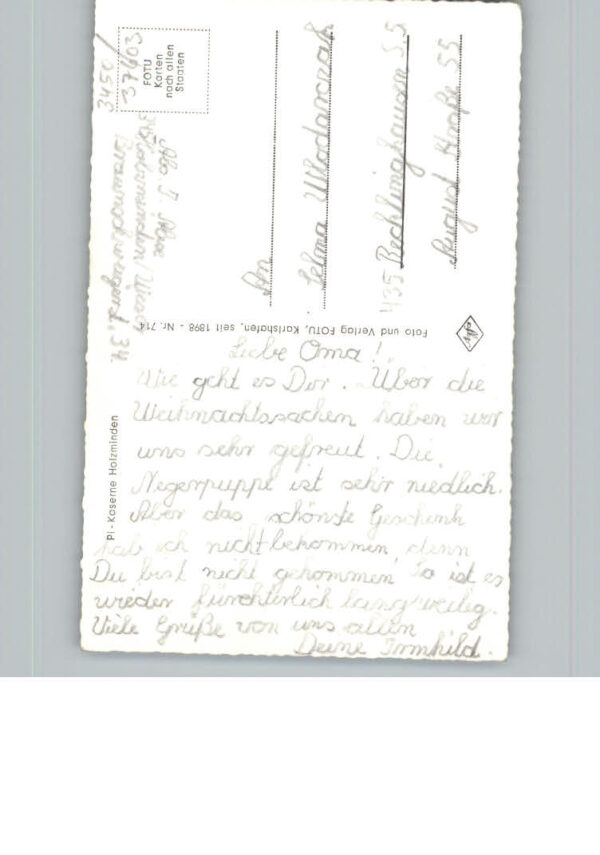 Liebe Oma!
Wie geht es Dir. Über die
Weihnachtssachen haben wir
uns sehr gefreut. Die
Negerpuppe ist sehr niedlich.
Aber das schönste Geschenk
hab ich nicht bekommen, denn
Du bist nicht gekommen. So ist es
wieder fürchterlich langweilig.
Viele Grüße von uns allen
Deine Irmhild.
Pi-Kaserne Holzminden
Foto und Verlag FOTU, Karlshafen, seit 1898 - Nr. 714
An
Selma
435 Recklinghausen S.5
August Straße 55
FOTU
Karten
nach allen
Staaten
3450/
37603
Abs. I.
Holzminden/Weser
34